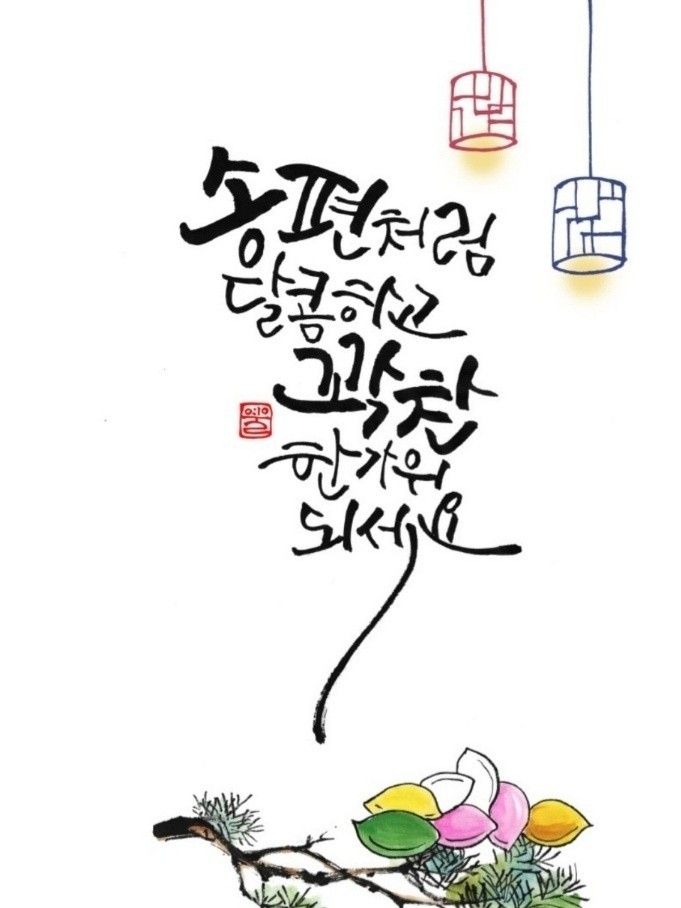 송편처럼
달콤하고
꼭찬
한가위
되세요